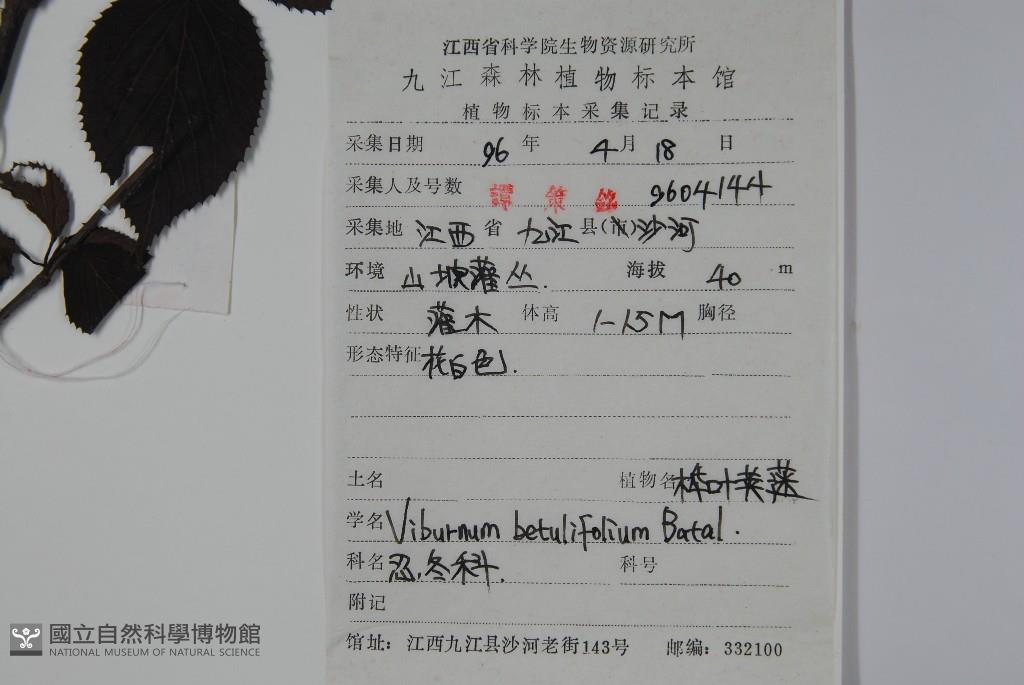 江西省科学院生物资源研究所
九江森林植物标本馆
植物标本采集记录
采集日期 96 年 4 月 18 日
采集人及号数 譚策銘 9604144
采集地 江西 省 九江 县(市)沙河
环境 山坡灌丛. 海拔 40 m
性状 灌木 体高 1-1.5M 胸径
形态特征 花白色.
土名 植物名 桦叶荚蒾
学名 Viburnum betulifolium Batal.
科名 忍冬科. 科号
附记
馆址：江西九江县沙河老街143号 邮编：332100
國立自然科學博物館
NATIONAL MUSEUM OF NATURAL SCIENCE